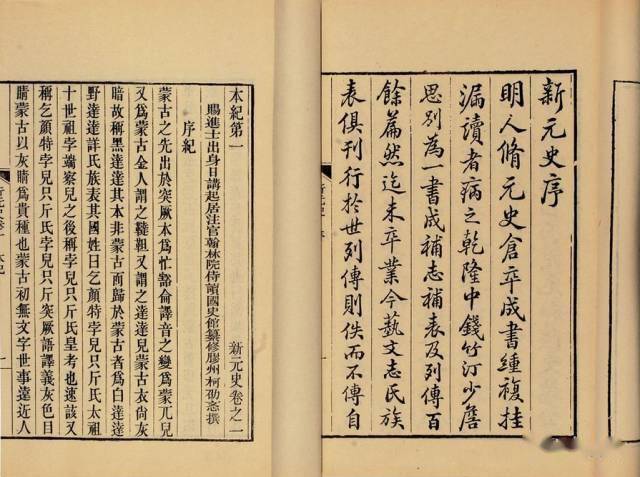 新元史序
明人脩元史倉卒成書緟複挂
漏讀者病之乾隆中錢竹汀少詹
思別爲一書成補志補表及列傳百
餘篇然迄未卒業今藝文志氏族
表俱刊行於世列傳則佚而不傳自
本紀第一 新元史卷之一
賜進士出身日講起居注官翰林院侍讀國史館纂修膠州柯劭忞撰
序紀
蒙古之先出於突厥本爲忙豁侖譯音之變爲蒙兀兒
又爲蒙古金人謂之韃靼又謂之達達兒蒙古衣尚灰
暗故稱黑達達其本非蒙古而歸於蒙古者爲白達達
野達達詳氏族表其國姓曰乞顏特孛兒只斤氏太祖
十世祖孛端察兒之後稱孛兒只斤氏皇考也速該又
稱乞顏特孛兒只斤氏孛兒只斤突厥語譯義灰色目
睛蒙古以灰睛爲貴種也蒙古初無文字世事遠近人